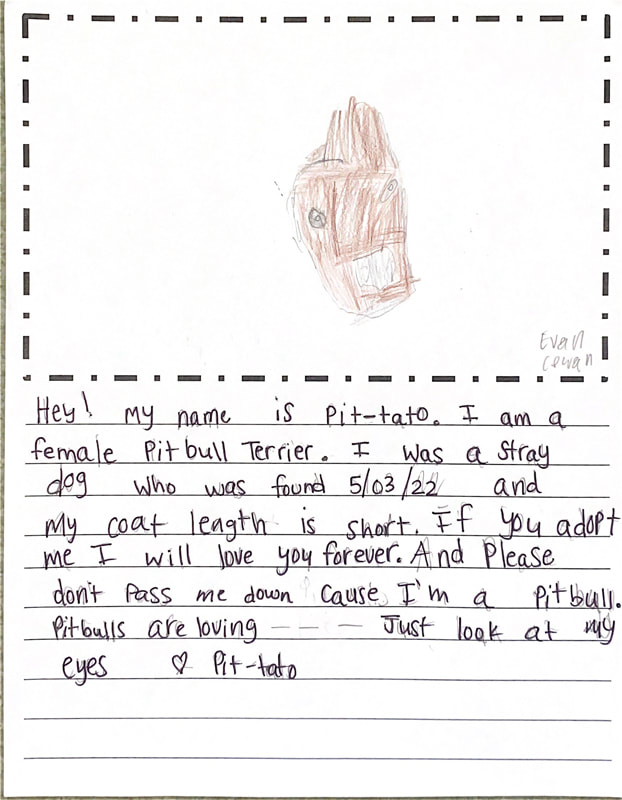 Evan
Cewan
Hey! My name is Pit-tato. I am a
female Pitbull Terrier. I was a stray
dog who was found 5/03/22 and
my coat length is short. If you adopt
me I will love you forever. And Please
don't Pass me down cause I'm a Pitbull.
Pitbulls are loving - - - Just look at my
eyes ♡ Pit-tato